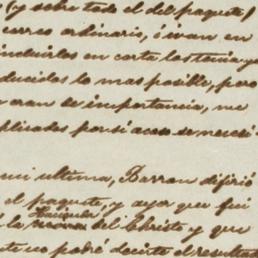 (y sobre todo el del paquete)
correo ordinario, ó ivan en
incluirlos en carta los tenia ya
ducidos lo mas posible, pero
eran de importancia, me
plicados por si acaso se necesi
mi ultima, Barron difirió
el paquete, y ayer que fui
Hacienda
á la del Christo y que
no podré decirte el resultad